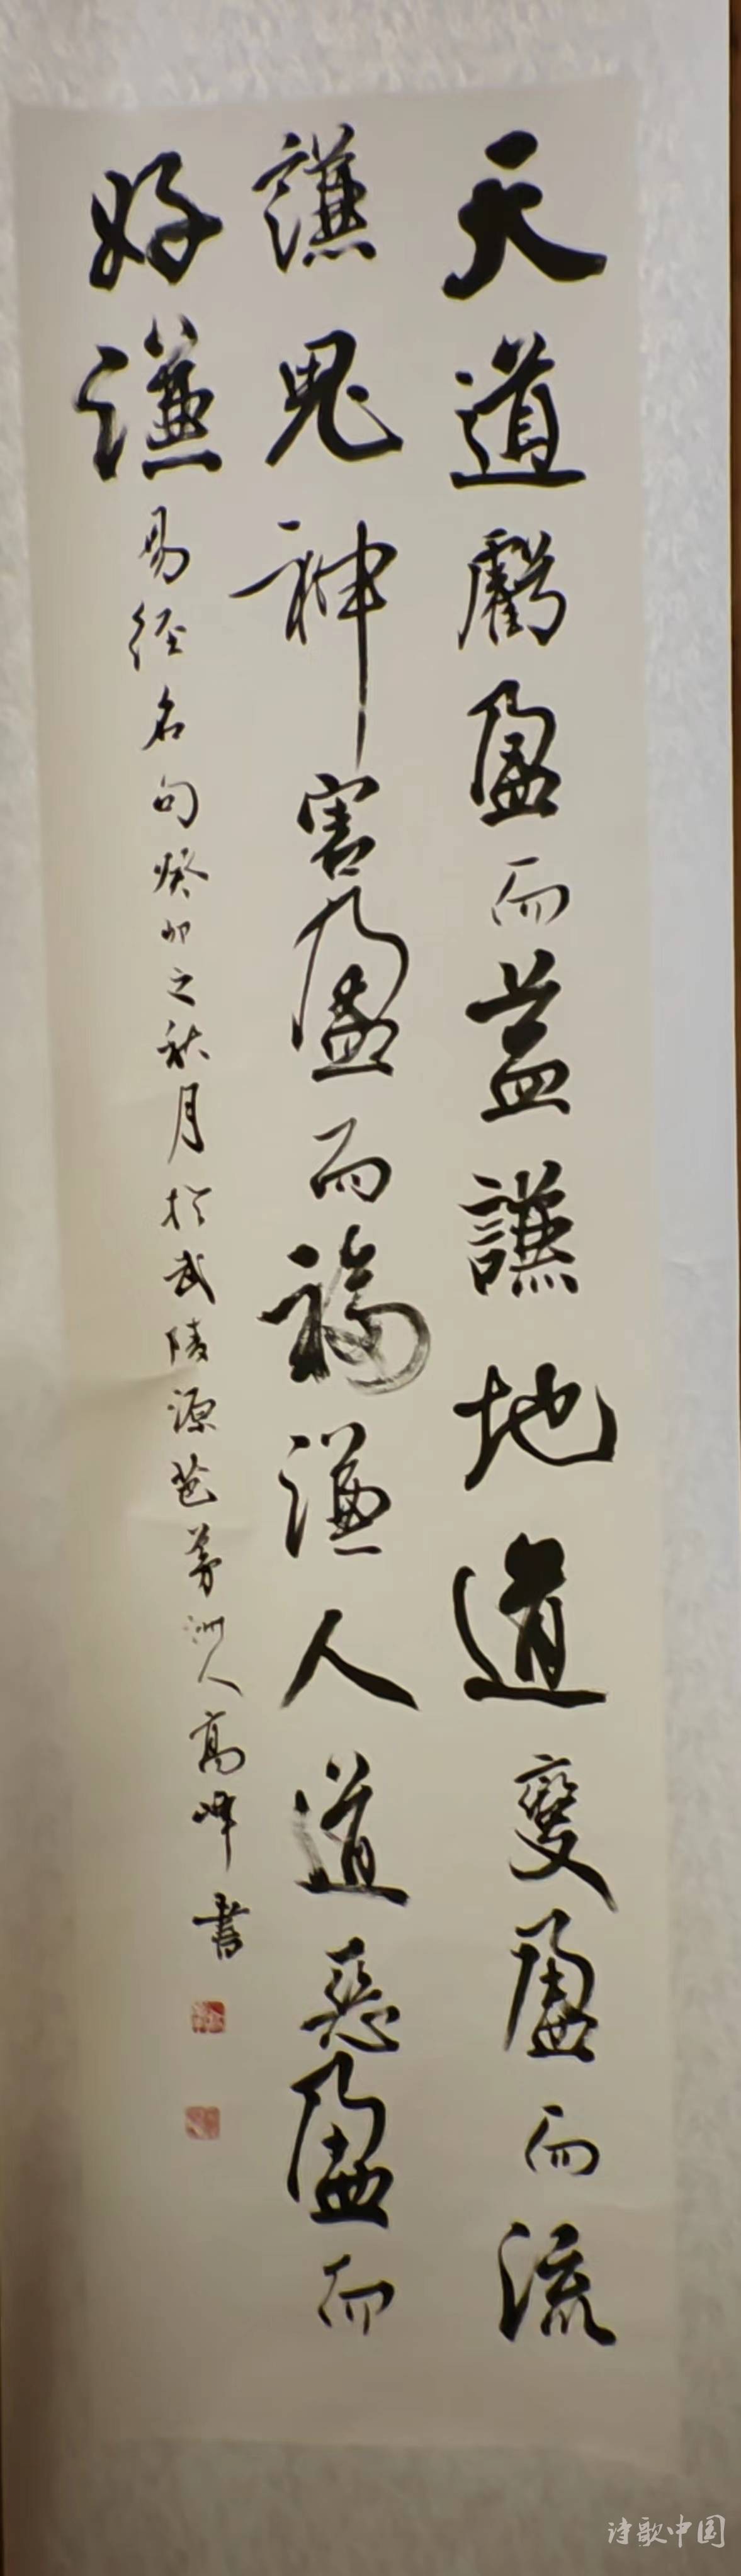 天道虧盈而益謙地道變盈而流
謙鬼神害盈而福謙人道惡盈而
好謙
易經名句癸卯之秋月於武陵源芭茅洲人高峰書
诗歌中国